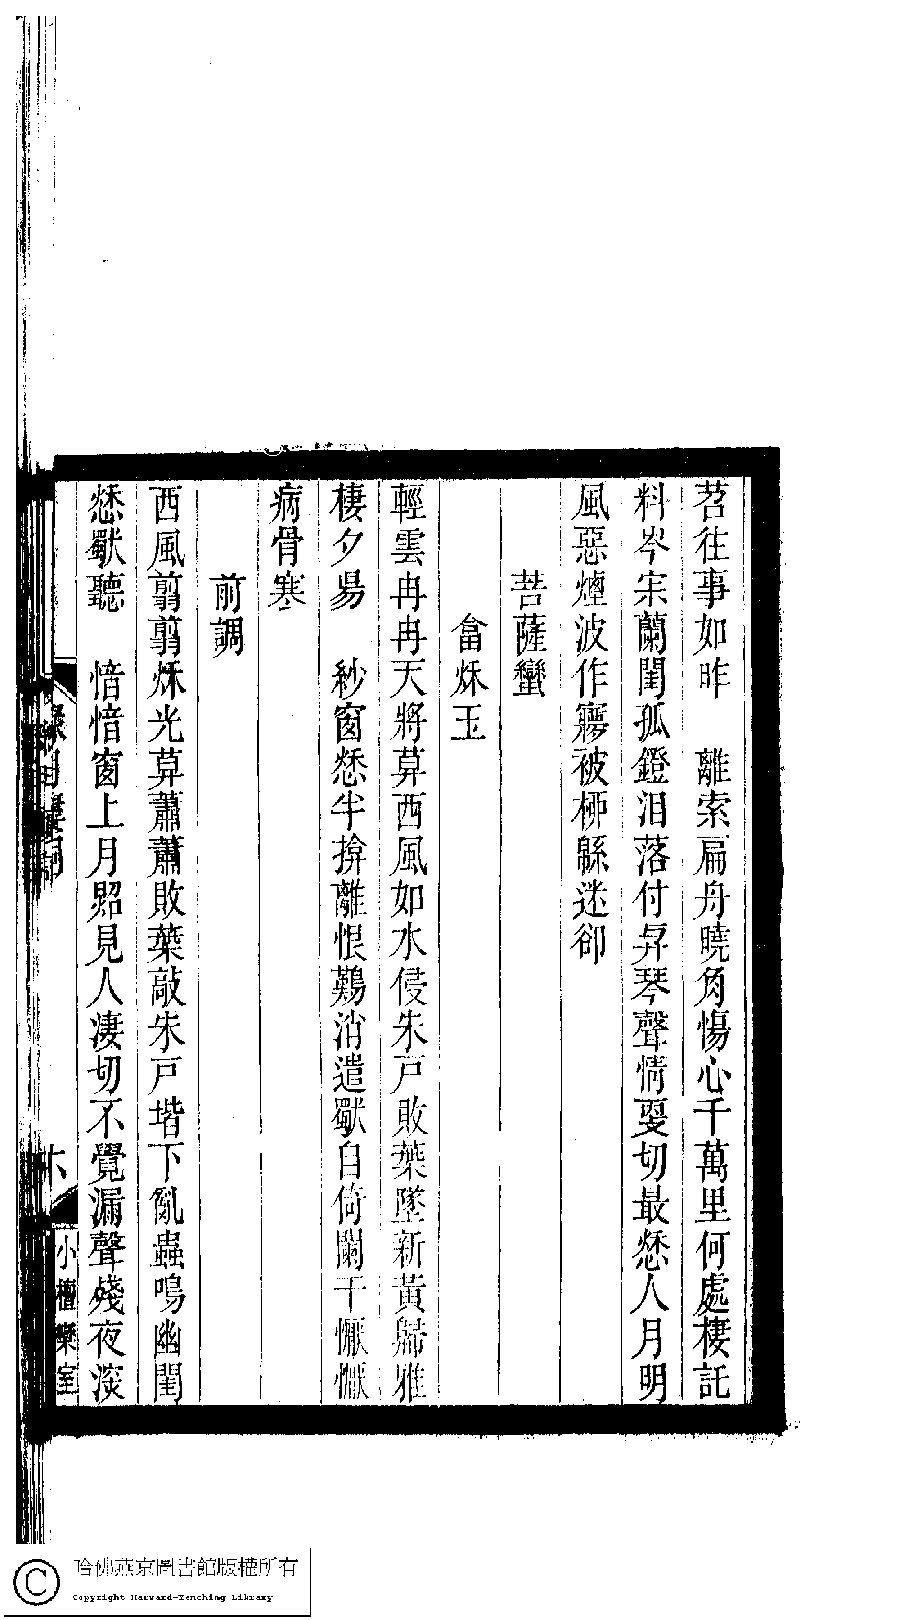 苕往事如昨　離索扁舟曉角傷心千萬里何處棲託
料岑寂蘭閨孤鐙泪落付與琴聲情更切最愁人月明
風惡煙波作寢被桺緜迷卻
菩薩蠻
畣秌玉
輕雲冉冉天將莫西風如水侵朱戸敗葉墜新黃歸雅
棲夕昜　紗窗愁半揜離恨鷄消遣獣自倚闌干懨懨
病骨寒
前調
西風翦翦秌光莫蕭蕭敗葉敲朱戸堦下亂蟲鳴幽閨
愁獣聽　愔愔窗上月照見人凄切不覺漏聲殘夜淡
小檀欒室
哈佛燕京圖書館版權所有
Copyright Harvard-Yenching Library